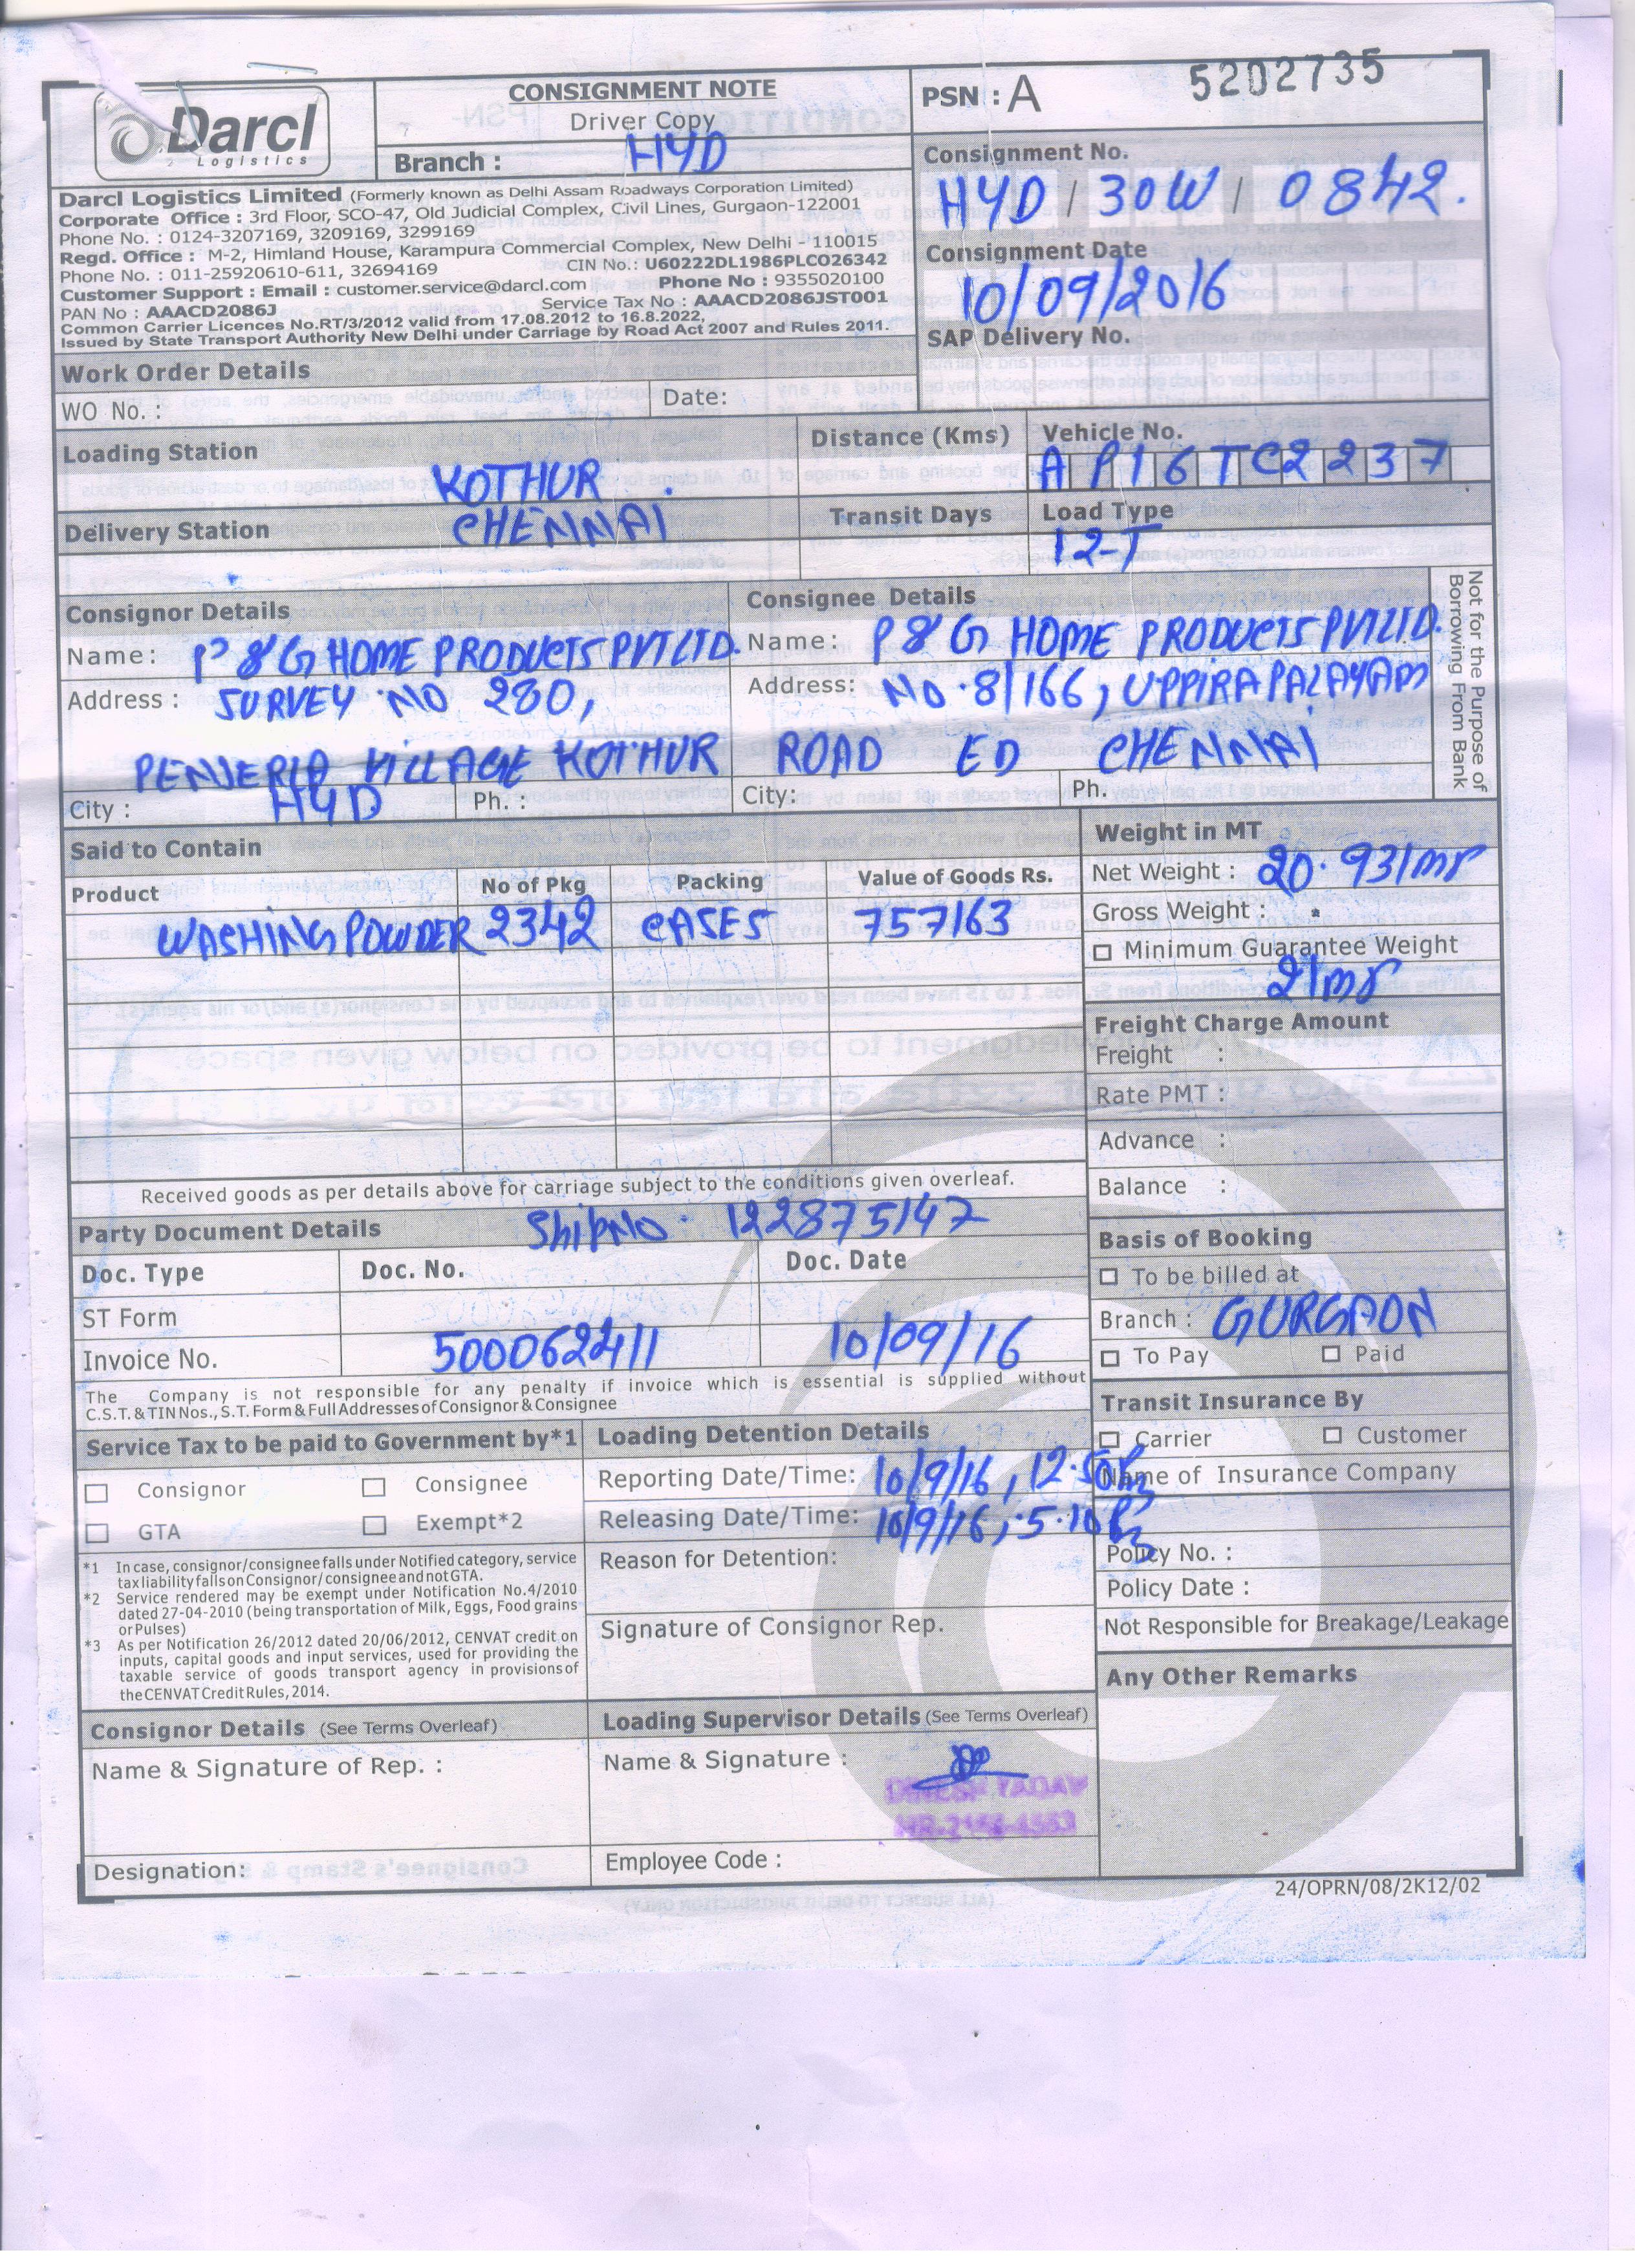 Darcl
Logistics
CONSIGNMENT NOTE
Driver Copy
Branch : HYD
PSN : A 5202735
Consignment No.
HYD / 30W / 0842.
Consignment Date
10/09/2016
SAP Delivery No.
Darcl Logistics Limited (Formerly known as Delhi Assam Roadways Corporation Limited)
Corporate Office : 3rd Floor, SCO-47, Old Judicial Complex, Civil Lines, Gurgaon-122001
Phone No. : 0124-3207169, 3209169, 3299169
Regd. Office : M-2, Himland House, Karampura Commercial Complex, New Delhi - 110015
Phone No. : 011-25920610-611, 32694169 CIN No.: U60222DL1986PLCO26342
Customer Support : Email : customer.service@darcl.com Phone No : 9355020100
PAN No : AAACD2086J Service Tax No : AAACD2086JST001
Common Carrier Licences No.RT/3/2012 valid from 17.08.2012 to 16.8.2022,
Issued by State Transport Authority New Delhi under Carriage by Road Act 2007 and Rules 2011.
Work Order Details
WO No. : Date:
Loading Station Distance (Kms) Vehicle No.
KOTHUR AP16TC2237
Delivery Station CHENNAI Transit Days Load Type
12-T
Consignor Details
Name: P & G HOME PRODUCTS PVT LTD.
Address : SURVEY NO 280,
VILLAGE KOTHUR
City : HYD Ph. :
Consignee Details
Name: P & G HOME PRODUCTS PVT LTD.
Address: NO.8/166, UPPIRAPALAYAM
ROAD ED CHENNAI
City: Ph.
Not for the Purpose of
Borrowing From Bank
Said to Contain
Product No of Pkg Packing Value of Goods Rs.
WASHING POWDER 2342 CASES 757163
Weight in MT
Net Weight : 20.931mr
Gross Weight :
Minimum Guarantee Weight
21mr
Freight Charge Amount
Freight :
Rate PMT :
Advance :
Balance :
Received goods as per details above for carriage subject to the conditions given overleaf.
Party Document Details Ship No. 122875147
Doc. Type Doc. No. Doc. Date
ST Form
Invoice No. 5000622411 10/09/16
The Company is not responsible for any penalty if invoice which is essential is supplied without
C.S.T. & TIN Nos., S.T. Form & Full Addresses of Consignor & Consignee
Basis of Booking
To be billed at
Branch : GURGAON
To Pay Paid
Transit Insurance By
Carrier Customer
Name of Insurance Company
Policy No. :
Policy Date :
Not Responsible for Breakage/Leakage
Any Other Remarks
Service Tax to be paid to Government by*1
Consignor Consignee
GTA Exempt*2
*1 In case, consignor/consignee falls under Notified category, service
tax liability falls on Consignor/ consignee and not GTA.
*2 Service rendered may be exempt under Notification No.4/2010
dated 27-04-2010 (being transportation of Milk, Eggs, Food grains
or Pulses)
*3 As per Notification 26/2012 dated 20/06/2012, CENVAT credit on
inputs, capital goods and input services, used for providing the
taxable service of goods transport agency in provisions of
the CENVAT Credit Rules, 2014.
Loading Detention Details
Reporting Date/Time: 10/9/16, 12.50 Pm
Releasing Date/Time: 10/9/16, 5.10 Pm
Reason for Detention:
Signature of Consignor Rep.
Consignor Details (See Terms Overleaf)
Name & Signature of Rep. :
Designation:
Loading Supervisor Details (See Terms Overleaf)
Name & Signature :
DINESH YADAV
Employee Code :
24/OPRN/08/2K12/02